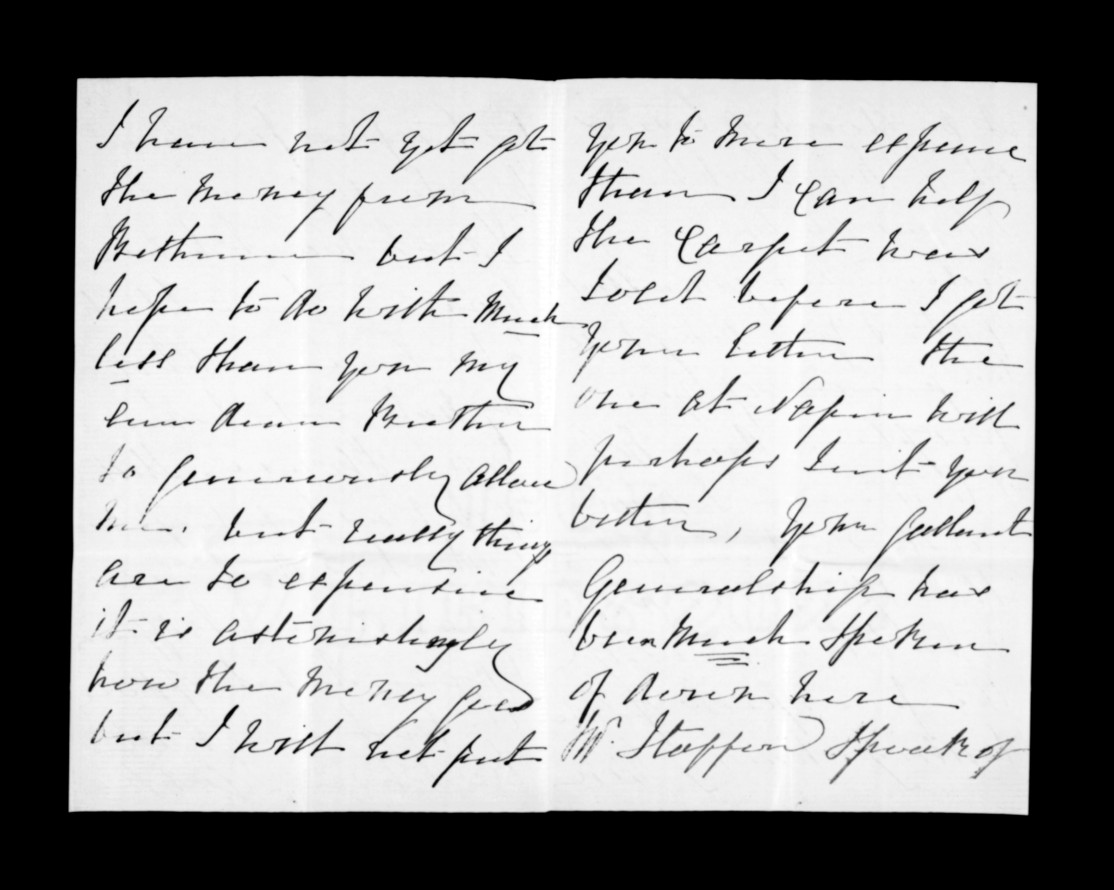 I have not yet got
the money from
Bethune but I
hope to do with much
less than you my
own dear Brother
so generously allow
me. but really things
are so expensive
it is astonishingly
how the money goes
but I will not put
you to more expense
than I can help
the Carpet was
sold before I got
your letter the
one at Napier will
perhaps suit you
better, your gallant
Generalship has
been much spoken
of down here
Mr. speak of